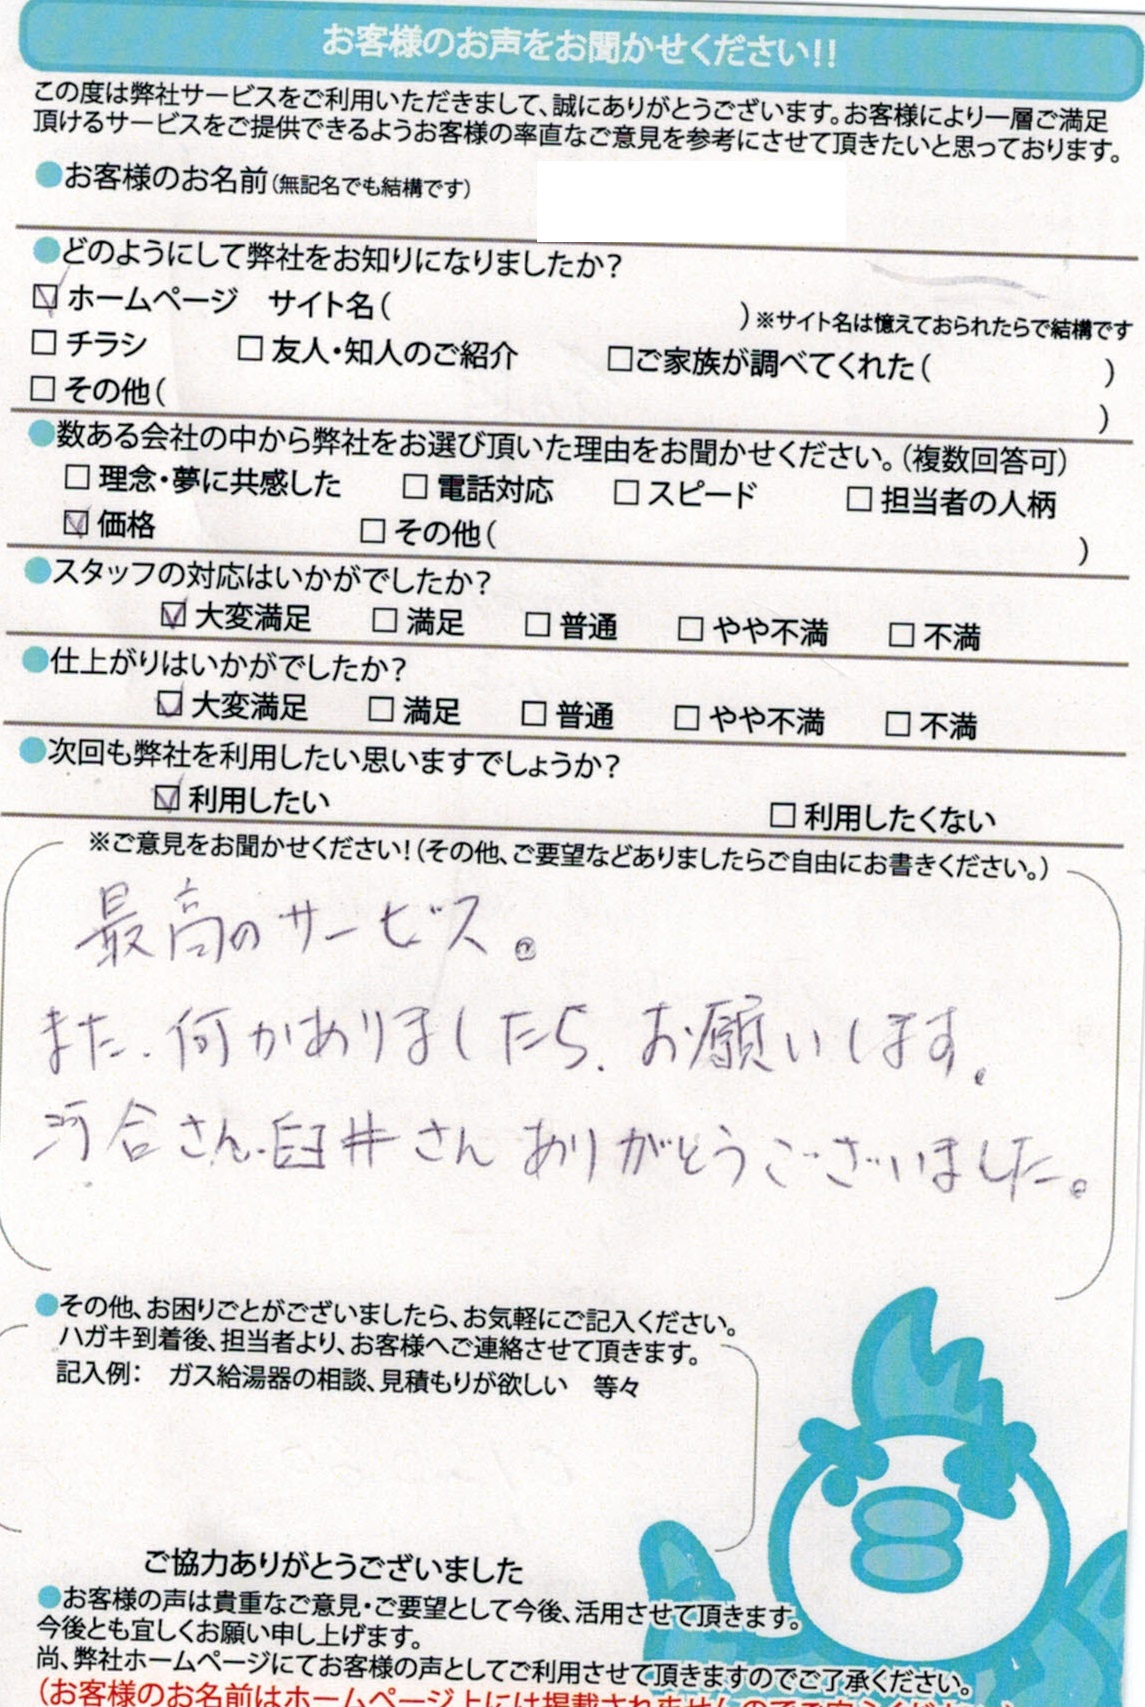 お客様のお声をお聞かせください!!
この度は弊社サービスをご利用いただきまして、誠にありがとうございます。お客様により一層ご満足
頂けるサービスをご提供できるようお客様の率直なご意見を参考にさせて頂きたいと思っております。
●お客様のお名前(無記名でも結構です)
●どのようにして弊社をお知りになりましたか?
☑ホームページ サイト名( )※サイト名は憶えておられたらで結構です
□チラシ □友人・知人のご紹介 □ご家族が調べてくれた( )
□その他( )
●数ある会社の中から弊社をお選び頂いた理由をお聞かせください。(複数回答可)
□理念・夢に共感した □電話対応 □スピード □担当者の人柄
☑価格 □その他( )
●スタッフの対応はいかがでしたか?
☑大変満足 □満足 □普通 □やや不満 □不満
●仕上がりはいかがでしたか?
☑大変満足 □満足 □普通 □やや不満 □不満
●次回も弊社を利用したい思いますでしょうか?
☑利用したい □利用したくない
※ご意見をお聞かせください!(その他、ご要望などありましたらご自由にお書きください。)
最高のサービス。
また、何かありましたら、お願いします。
河合さん、臼井さんありがとうございました。
●その他、お困りごとがございましたら、お気軽にご記入ください。
ハガキ到着後、担当者より、お客様へご連絡させて頂きます。
記入例: ガス給湯器の相談、見積もりが欲しい 等々
ご協力ありがとうございました
●お客様の声は貴重なご意見・ご要望として今後、活用させて頂きます。
今後とも宜しくお願い申し上げます。
尚、弊社ホームページにてお客様の声としてご利用させて頂きますのでご了承ください。
(お客様のお名前はホームページ上には掲載されませんのでご安心ください)